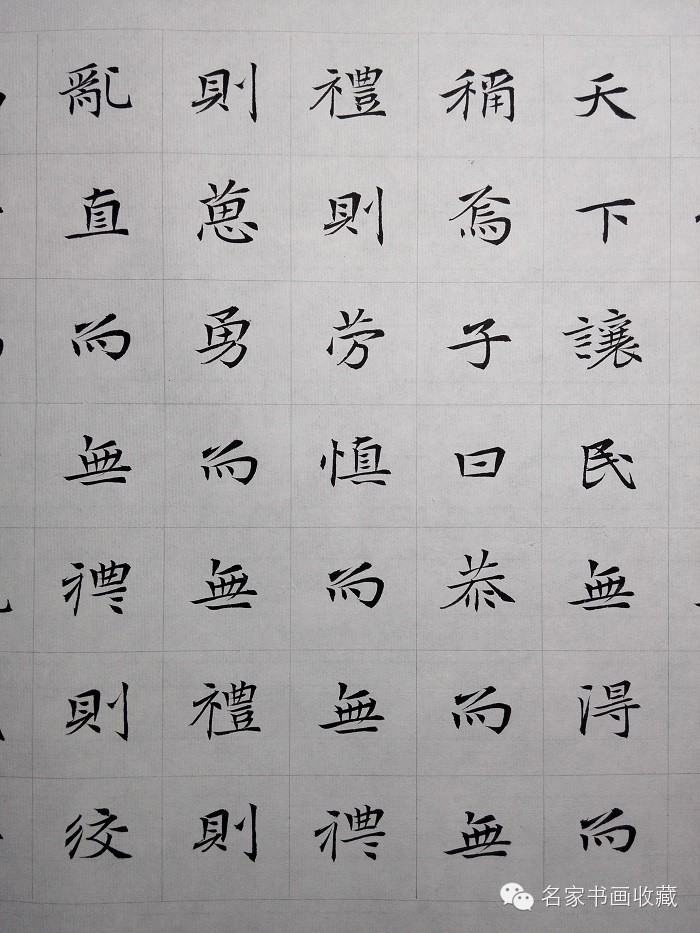 天下讓民無得而
稱焉子曰恭而無
禮則勞慎而無禮
則葸勇而無禮則
亂直而無禮則絞
名家书画收藏